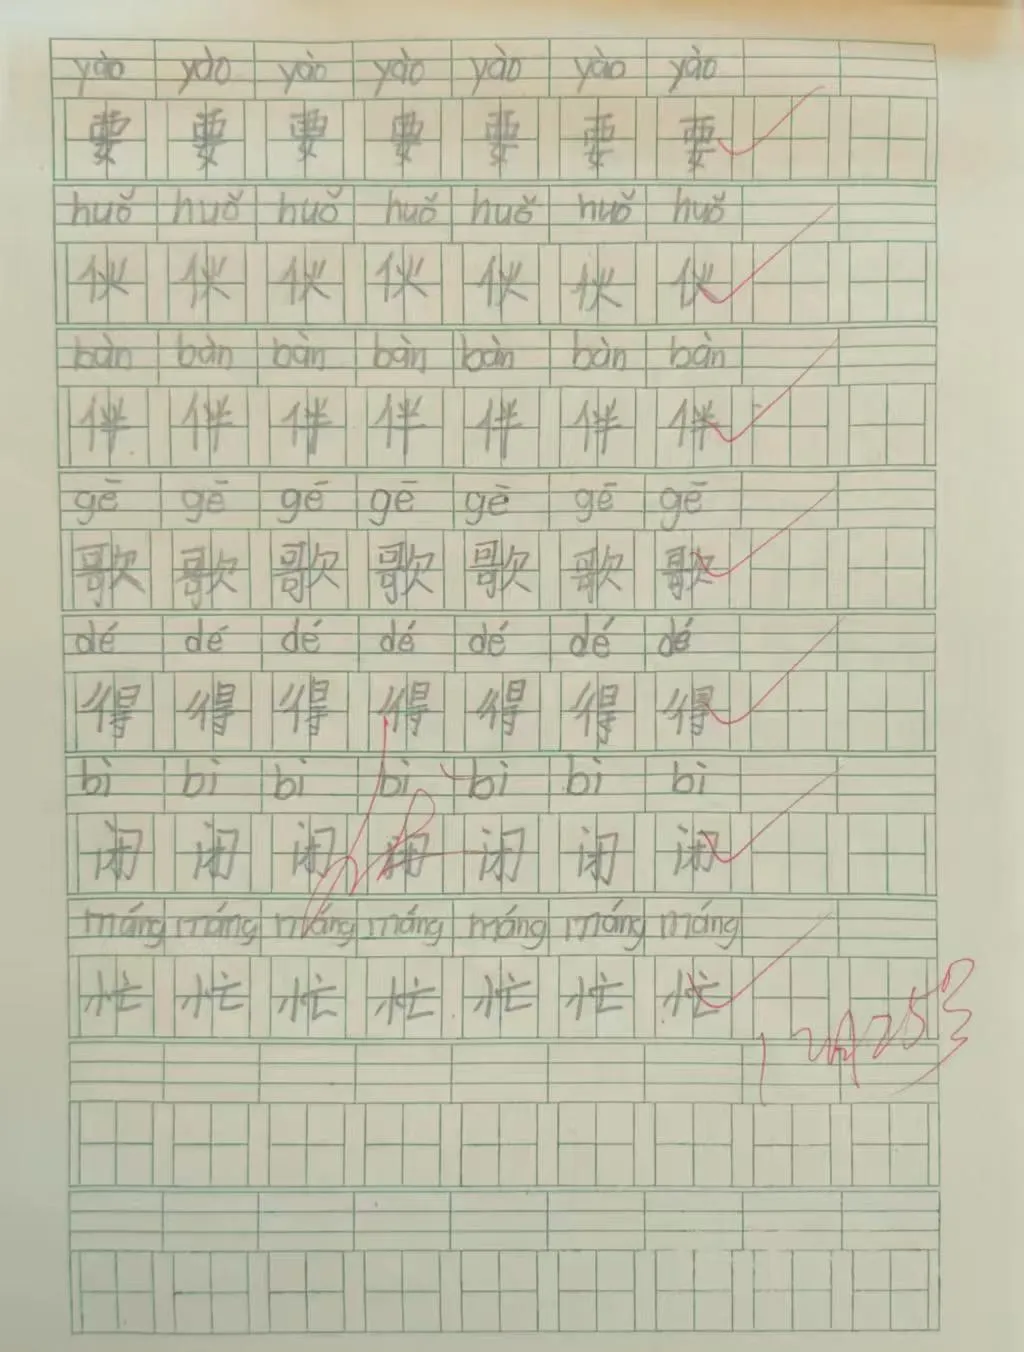 yào yào yào yào yào yào yào
要 要 要 要 要 要 要
huǒ huǒ huǒ huǒ huǒ huǒ huǒ
伙 伙 伙 伙 伙 伙 伙
bàn bàn bàn bàn bàn bàn bàn
伴 伴 伴 伴 伴 伴 伴
gē gē gē gē gē gē gē
歌 歌 歌 歌 歌 歌 歌
dé dé dé dé dé dé dé
得 得 得 得 得 得 得
bì bì bì bì bì bì bì
闭 闭 闭 闭 闭 闭 闭
máng máng máng máng máng máng máng
忙 忙 忙 忙 忙 忙 忙